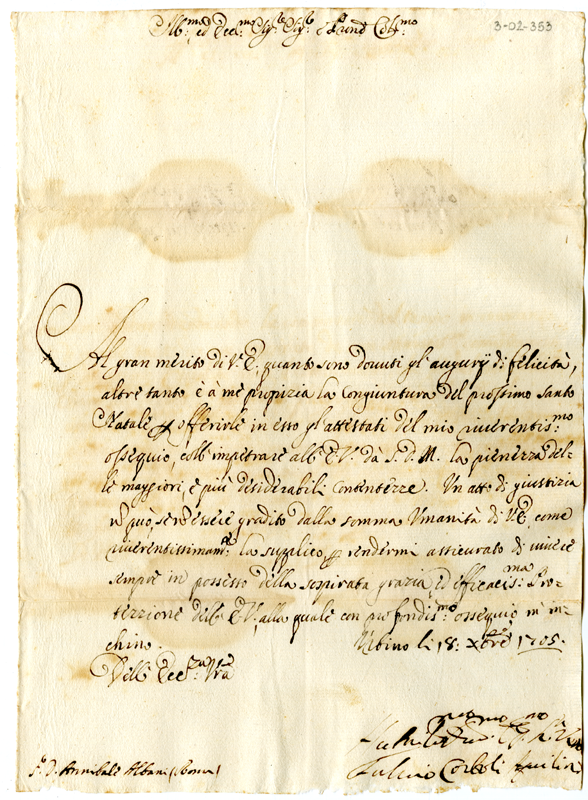 Ill:mo ed Ecc:mo Sig:re Sig:re Prone Col:mo
3-02-353
Al gran merito di V.E. quanto sono douuti gl'augurÿ di felicità,
altre tanto è à me propizia la congiuntura del prossimo Santo
Natale p offerirle in esso gl'attestati del mio riuerentis:mo
ossequio, coll'impetrare all'E.V. dà S.D.M. la pienezza del-
le maggiori, e più desiderabili contentezze. Un atto di giustizia
non può, se non essere gradito dalla somma Umanità di V.E. come
riuerentissimam:te la supplico, p rendermi assicurato di uiuere
sempre in possesso della sospirata grazia, ed efficacis:ma Pro-
tezzione dell'E.V., alla quale con profondis:mo ossequio m'in-
chino. Urbino li 18: Xbre 1705.
Dell'Ecc:za Vra
S.r D. Annibale Albani (Roma)
Fuluio Corboli Aquilini